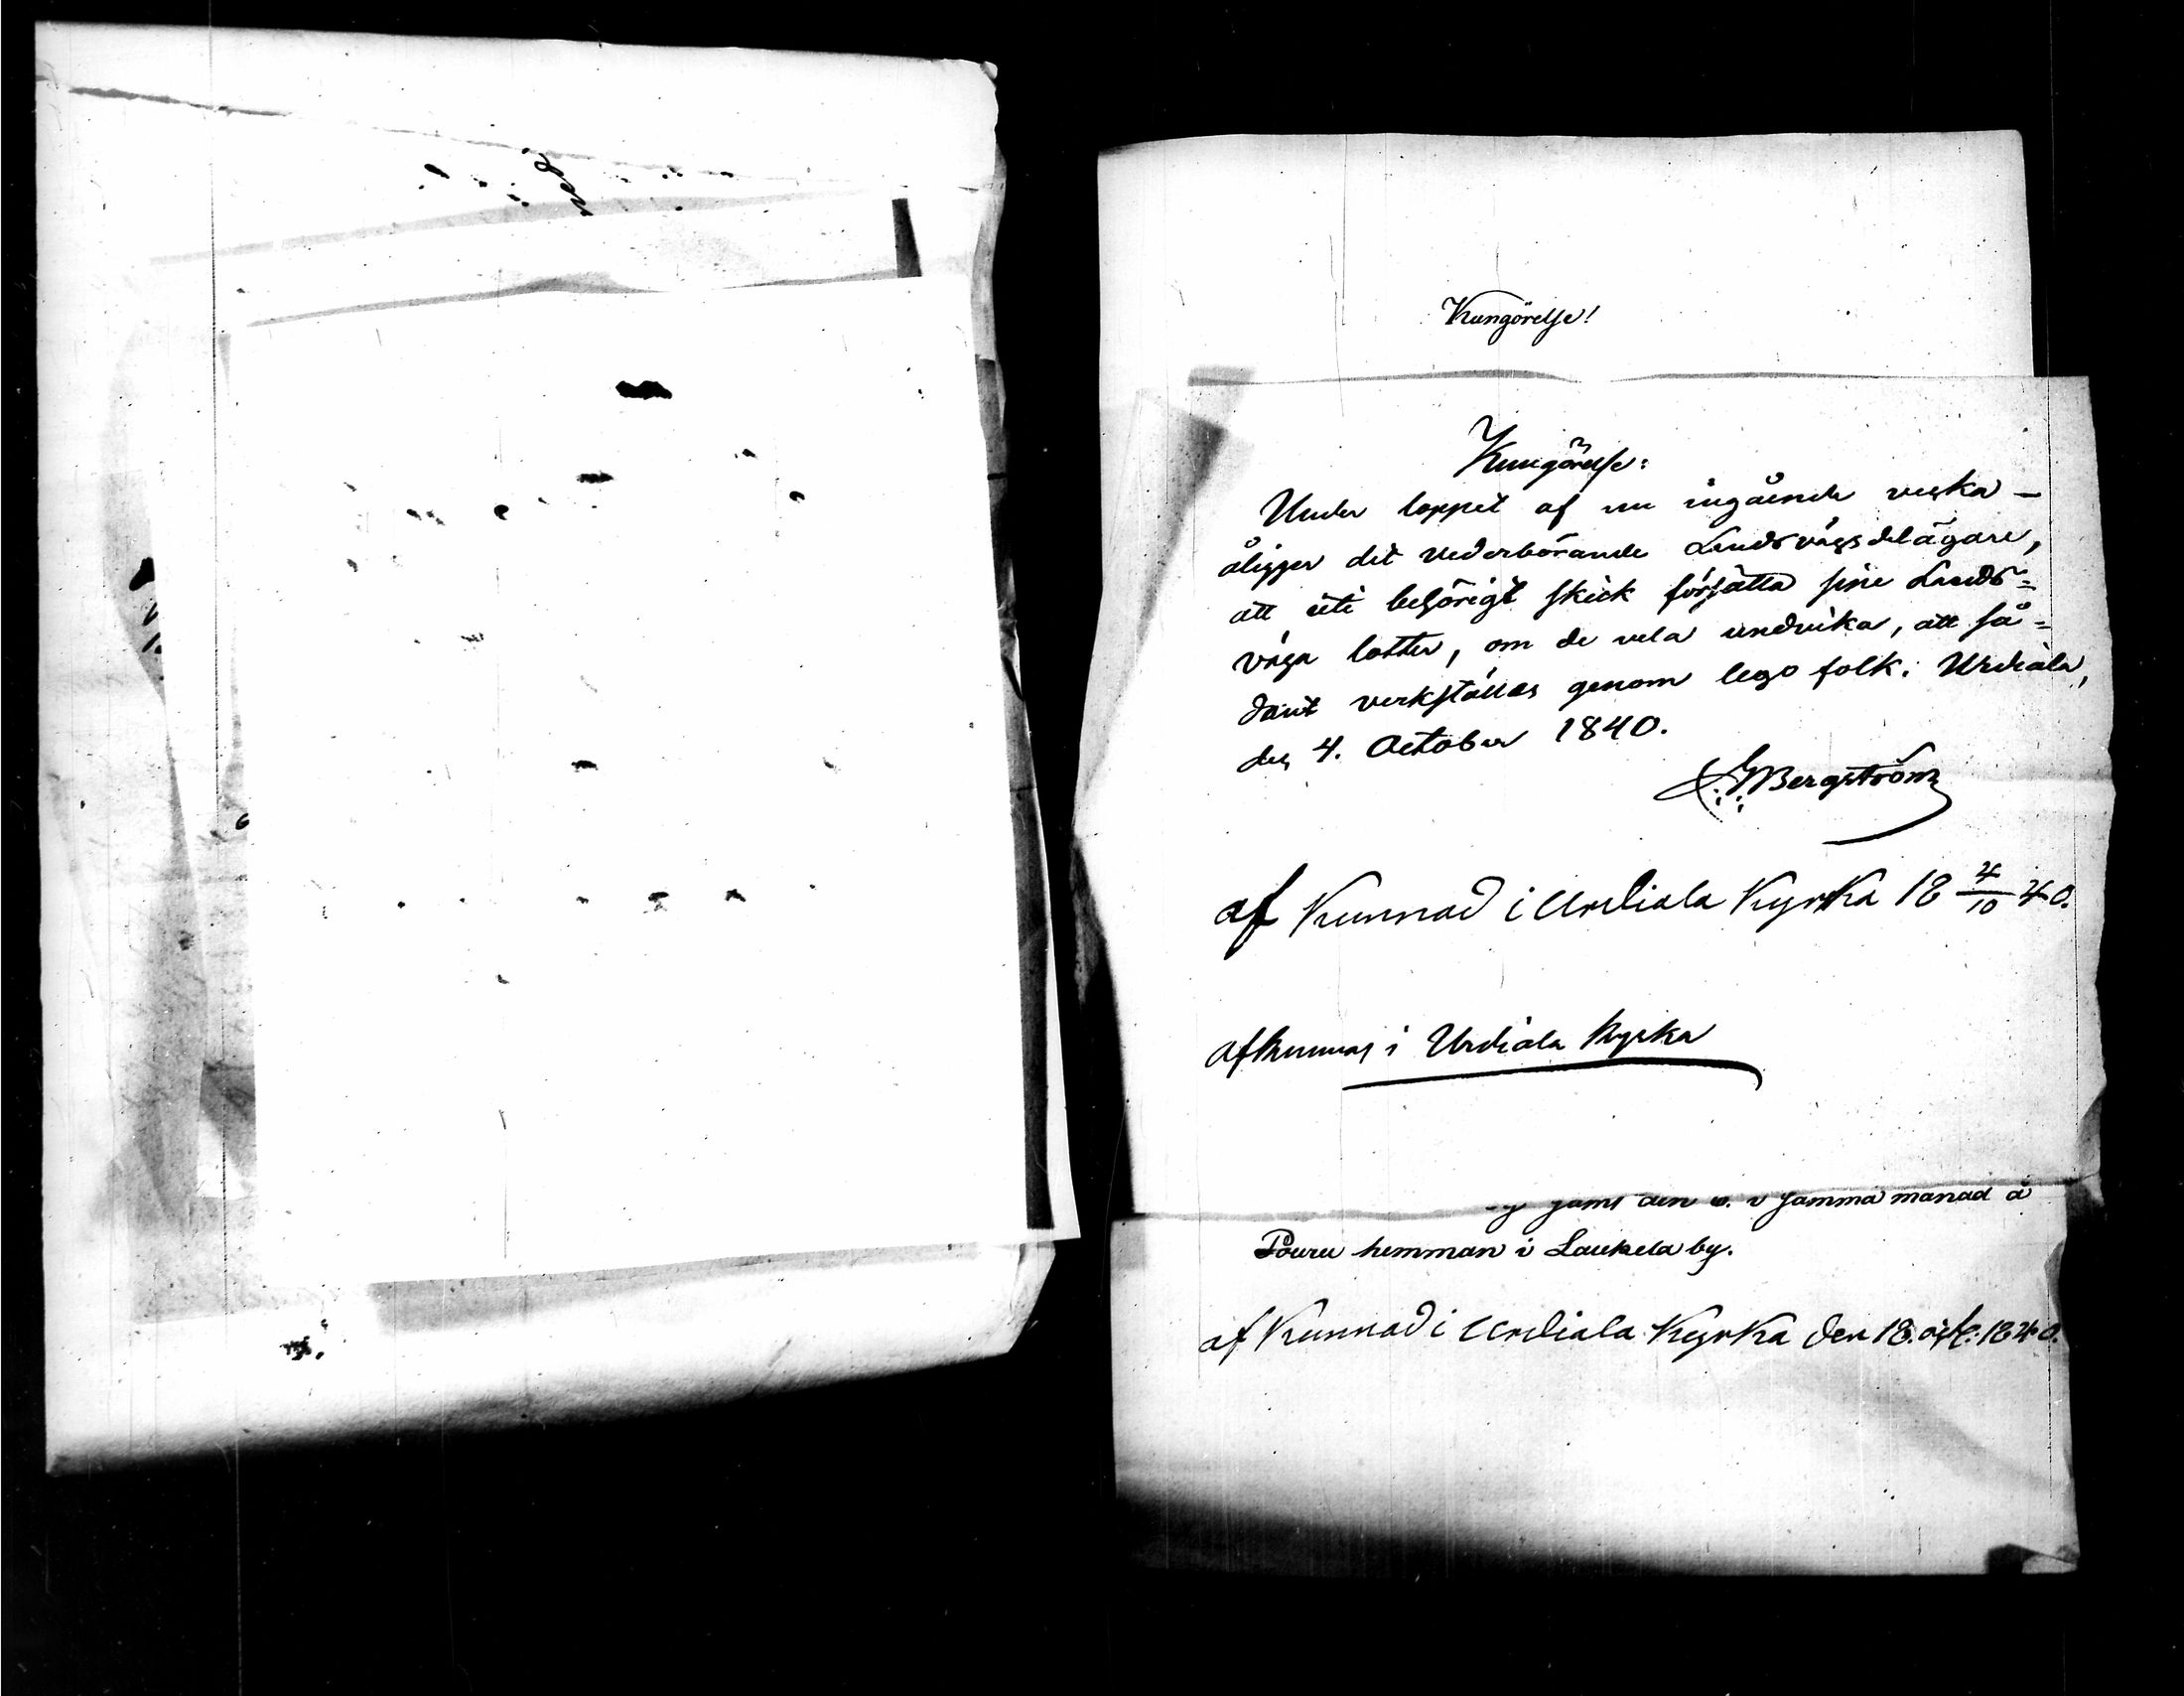 Kungörelse!
Kungörelse:
Under loppet af nu ingående vecka
åligger det vederbörande Landsvägsdelägare,
att uti behörigt skick försätta sine Lands=
väga lotter, om de vela undvika, att så=
dant verkställas genom lego folk. Urdiala,
den 4. October 1840.
Bergström
af Kunnad i Urdiala Kyrka 18 4/10 40.
afkunnas i Urdiala kyrka
samt den 6. samma månad å
Pouru hemman i Laukela by.
af Kunnad i Urdiala Kyrka den 18. 1840.